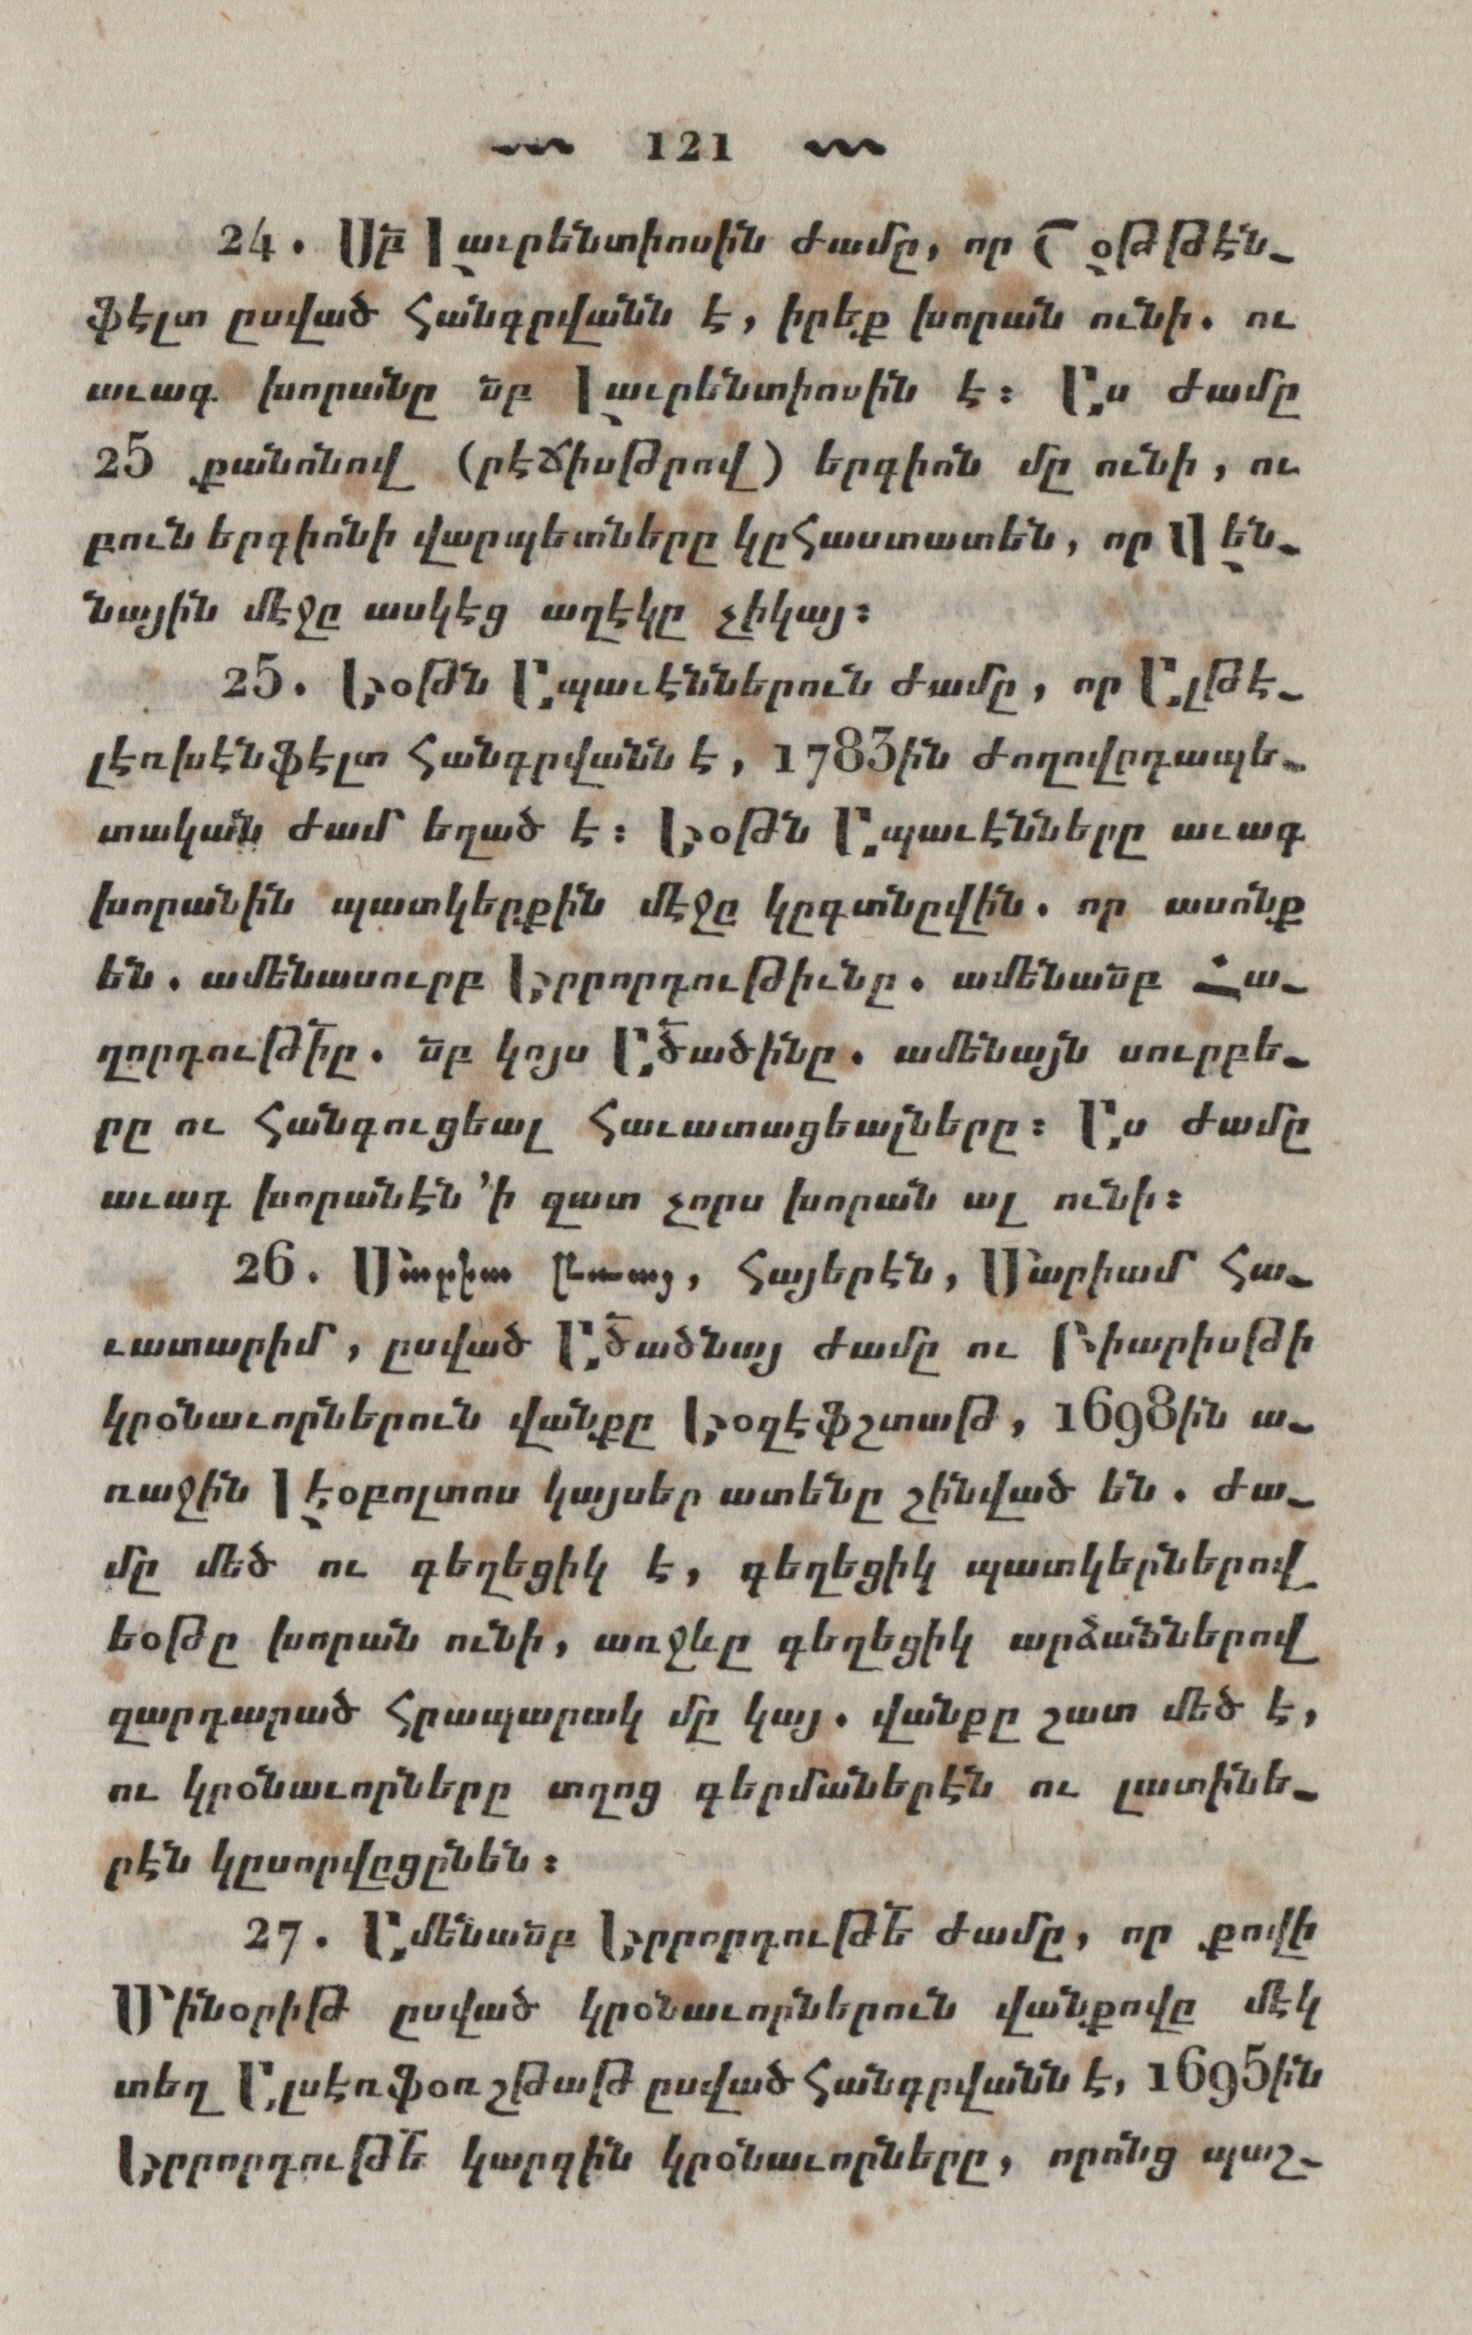 121
24. Սբ Լաւրենտիոսին ժամը, որ Շօթթէն֊
ֆէլտ ըսված հանգրվանն է, իրեք խորան ունի. ու
աւագ խորանը սբ Լաւրենտիոսին է։ Աս ժամը
25 քանոնով (րէճիսթրով) երգիոն մը ունի, ու
բուն երգիոնի վարպետները կըհաստատեն, որ Վեն֊
նային մէջը ասկէց աղէկը չիկայ։
25. Եօթն Ապաւէններուն ժամը, որ Ալթէ֊
լէռխէնֆէլտ հանգրվանն է, 1783ին ժողովրդապե֊
տական ժամ եղած է։ Եօթն Ապաւէնները աւագ
խորանին պատկերքին մէջը կըգտնըվին. որ ասոնք
են. ամենասուրբ Երրորդութիւնը. ամենասբ Հա֊
ղորդութիը. սբ կոյս Ածածինը. ամենայն սուրբե֊
րը ու հանգուցեալ հաւատացեալները։ Աս ժամը
աւագ խորանէն ՚ի զատ չորս խորան ալ ունի։
26. Մարիա թրայ, հայերէն, Մարիամ հա֊
ւատարիմ, ըսված Ածածնայ ժամը ու Բիարիսթի
կրօնաւորներուն վանքը Եօզէֆշտաթ, 1698ին ա֊
ռաջին Լէօբոլտոս կայսեր ատենը շինված են. ժա֊
մը մեծ ու գեղեցիկ է, գեղեցիկ պատկերներով
եօթը խորան ունի, առջևը գեղեցիկ արձաններով
զարդարած հրապարակ մը կայ. վանքը շատ մեծ է,
ու կրօնաւորները տղոց գերմաներէն ու լատինե֊
րէն կըսորվըցընեն։
27. Ամենասբ Երրորդութե ժամը, որ քովի
Մինօրիթ ըսված կրօնաւորներուն վանքովը մէկ
տեղ Ալսէռֆօռշթաթ ըսված հանգրվանն է, 1695ին
Երրորդութե կարգին կրօնաւորները, որոնց պաշ֊